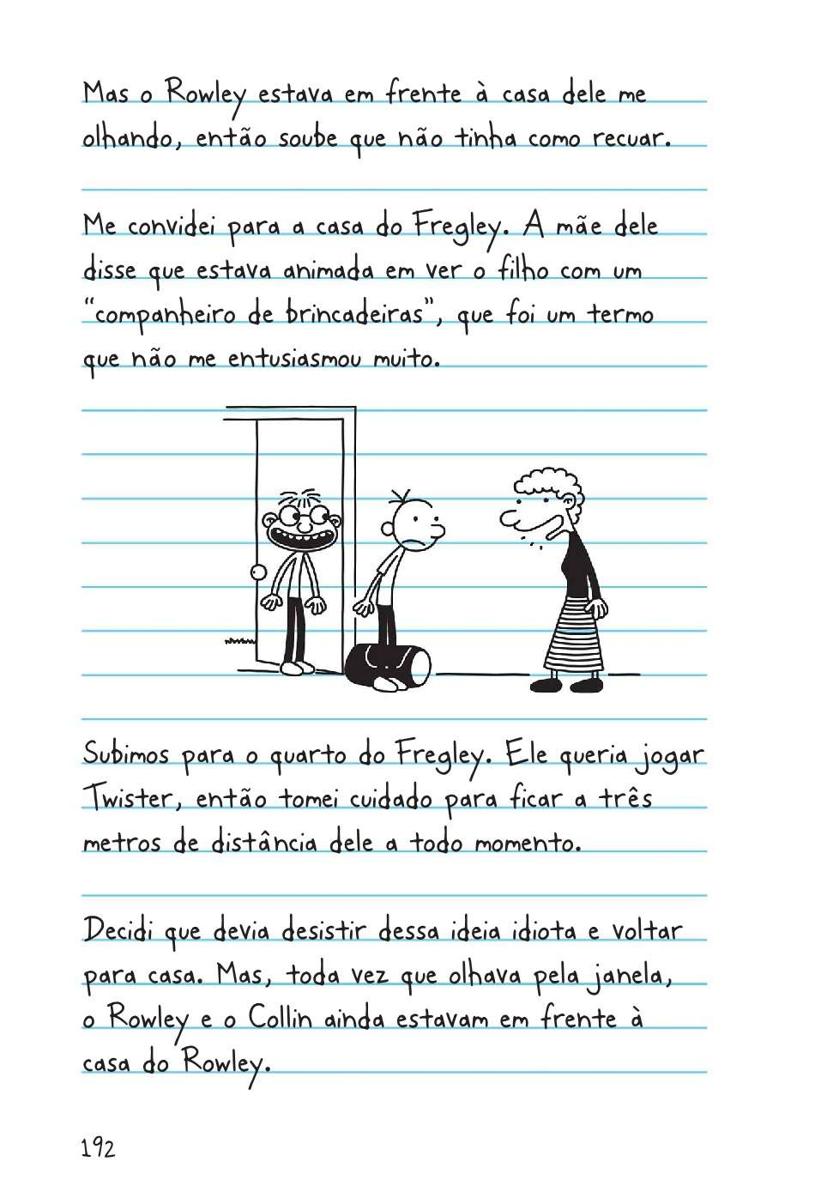 Mas o Rowley estava em frente à casa dele me
olhando, então soube que não tinha como recuar.
Me convidei para a casa do Fregley. A mãe dele
disse que estava animada em ver o filho com um
“companheiro de brincadeiras”, que foi um termo
que não me entusiasmou muito.
Subimos para o quarto do Fregley. Ele queria jogar
Twister, então tomei cuidado para ficar a três
metros de distância dele a todo momento.
Decidi que devia desistir dessa ideia idiota e voltar
para casa. Mas, toda vez que olhava pela janela,
o Rowley e o Collin ainda estavam em frente à
casa do Rowley.
192